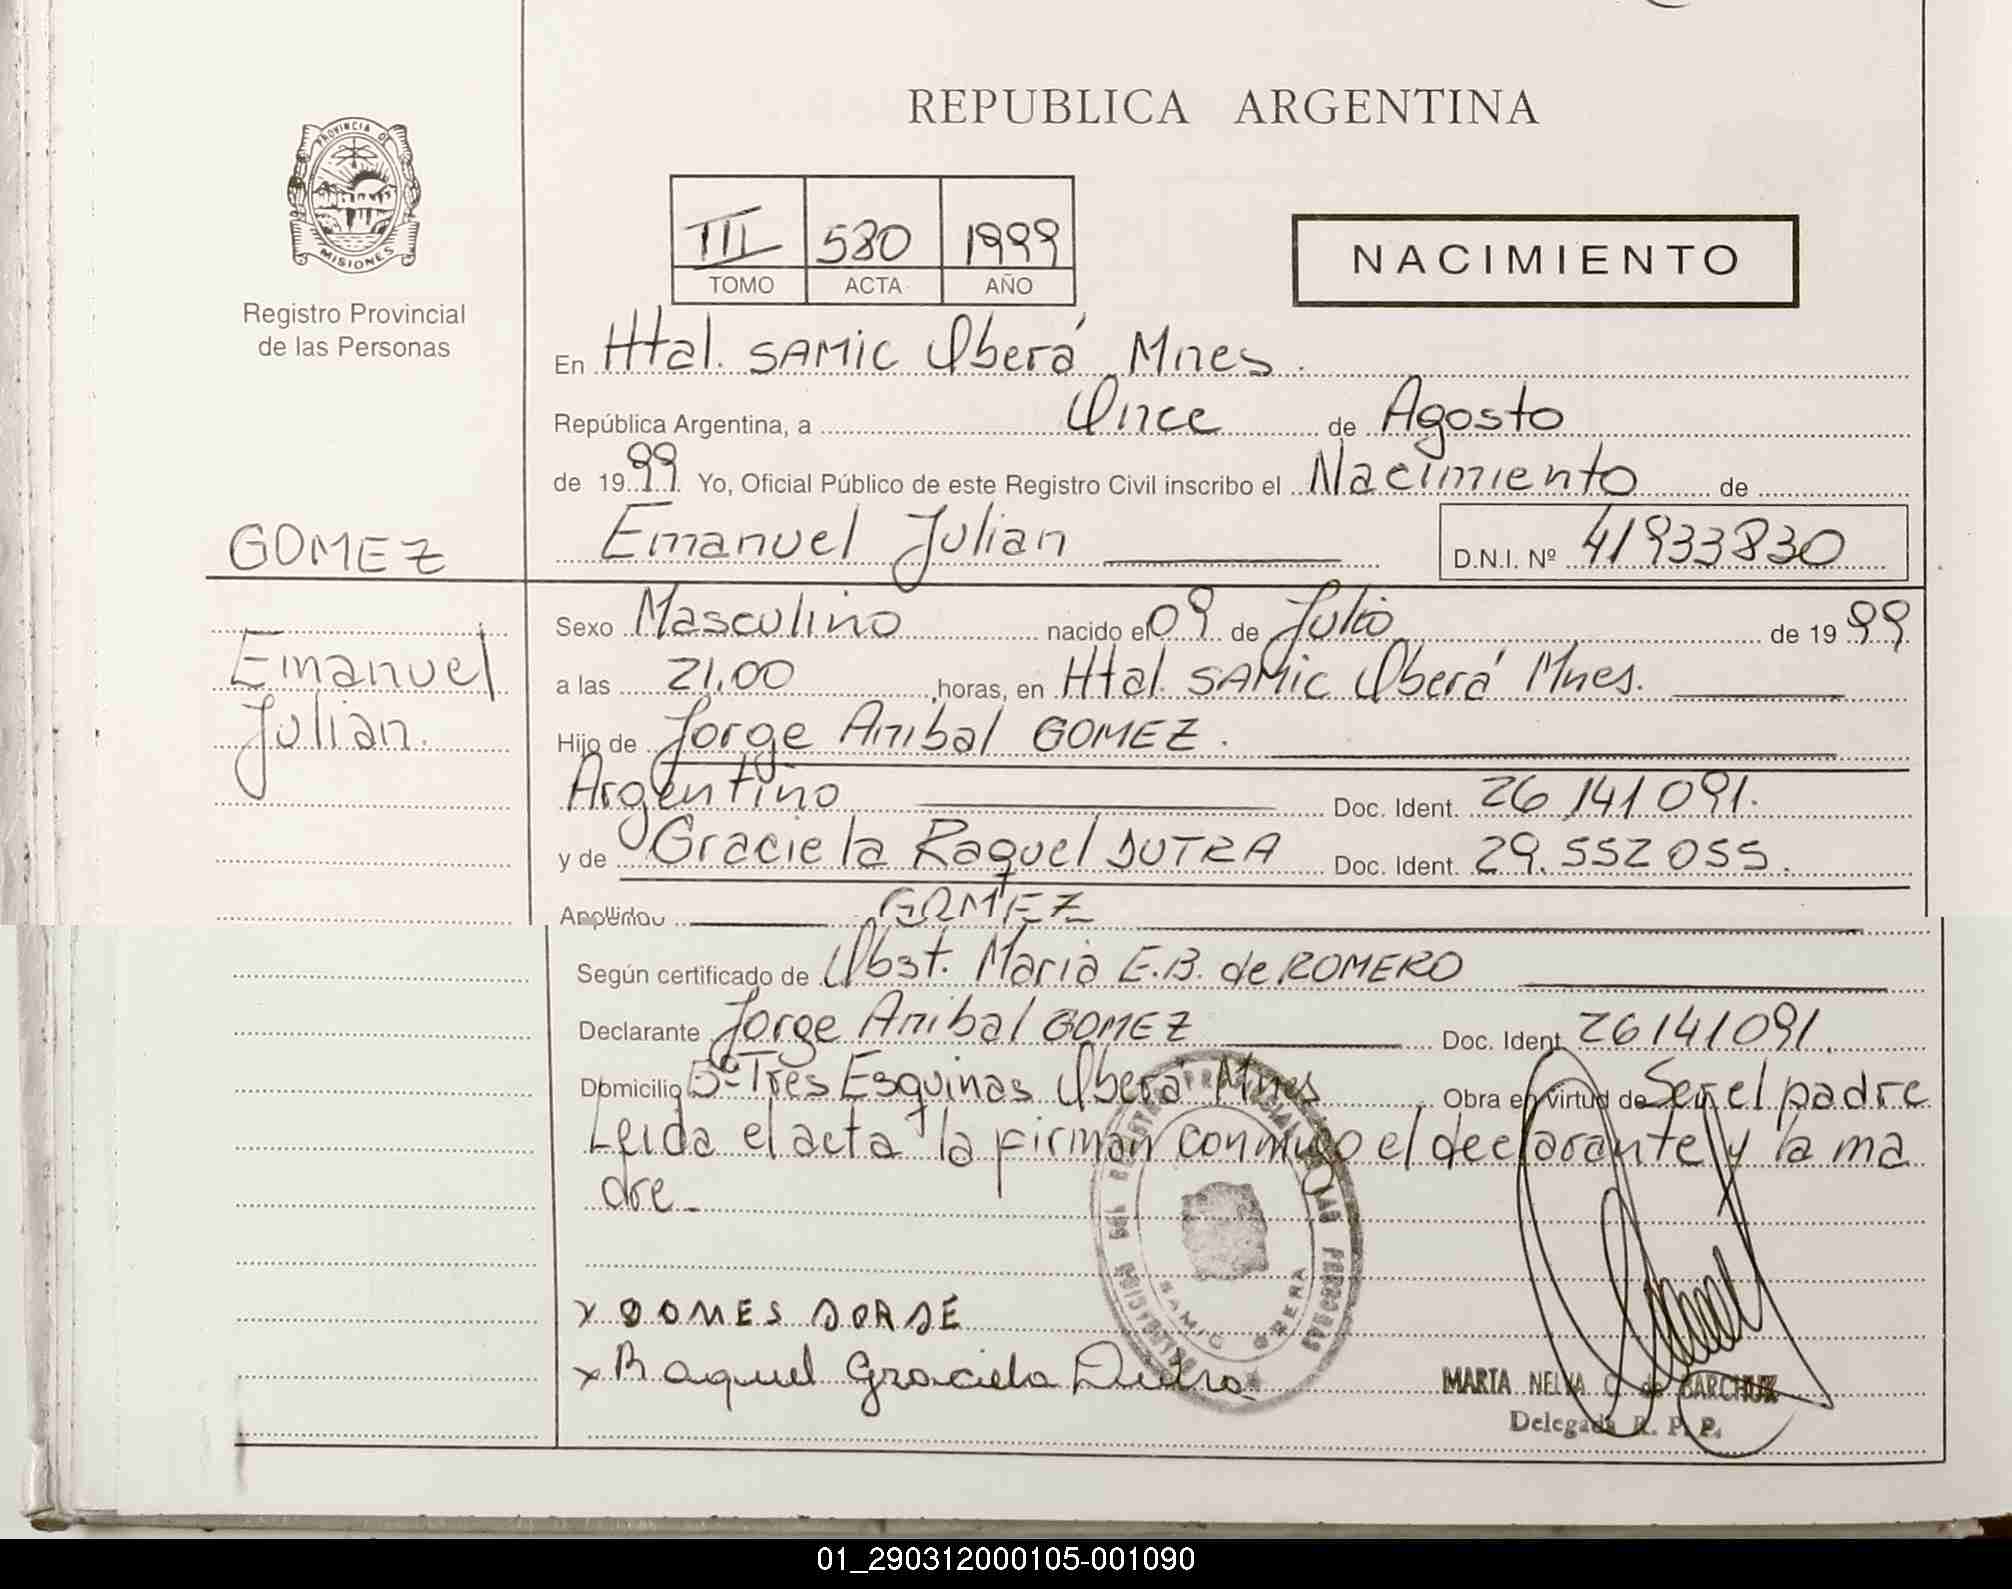 REPUBLICA ARGENTINA
PROVINCIA DE
MISIONES
Registro Provincial
de las Personas
III 580 1999
TOMO ACTA AÑO
NACIMIENTO
En Htal. SAMIC Oberá Mnes.
República Argentina, a Once de Agosto
de 1999 Yo, Oficial Público de este Registro Civil inscribo el Nacimiento de
Emanuel Julian D.N.I. Nº 41933830
GOMEZ
Emanuel
Julian.
Sexo Masculino nacido el 09 de Julio de 1999
a las 21,00 horas, en Htal. SAMIC Oberá Mnes.
Hijo de Jorge Anibal GOMEZ.
Argentino Doc. Ident. 26 141 091.
y de Graciela Raquel DUTRA Doc. Ident. 29.552 055.
Apellido GOMEZ
Según certificado de Obst. Maria E.B. de ROMERO
Declarante Jorge Anibal GOMEZ Doc. Ident. 26141091.
Domicilio Bº Tres Esquinas Oberá Mnes Obra en virtud de Ser el padre
Leida el acta la firman conmigo el declarante y la ma
dre_
SAMIC OBERA
x GOMES JORGE
x Raquel Graciela Dutra
MARTA NELVA C. de BARCHUK
Delegada R. P. P.
01_290312000105-001090